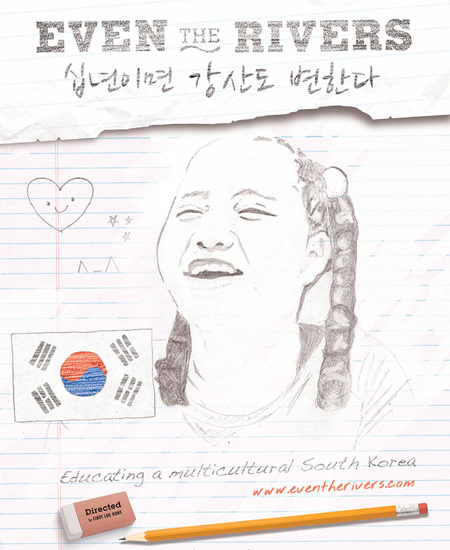 EVEN THE RIVERS
십년이면 강산도 변한다
^-^
Educating a multicultural South Korea
www.eventherivers.com
Directed
by CINDY LOU HOWE